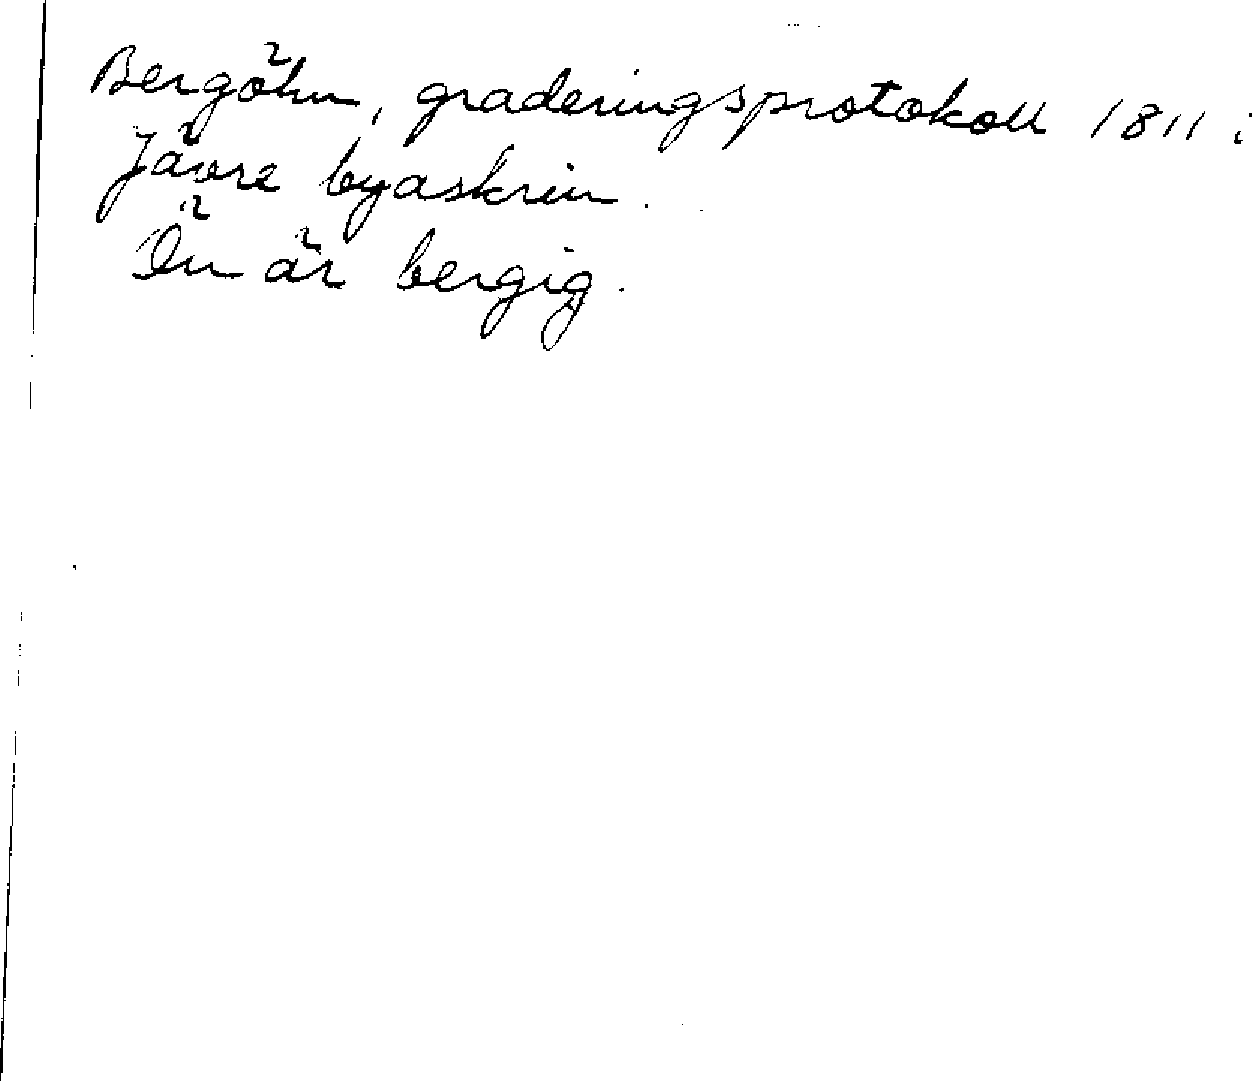 Bergöhn, graderingsprotokoll 1811 i
Jävre byaskrin.
Ön är bergig.